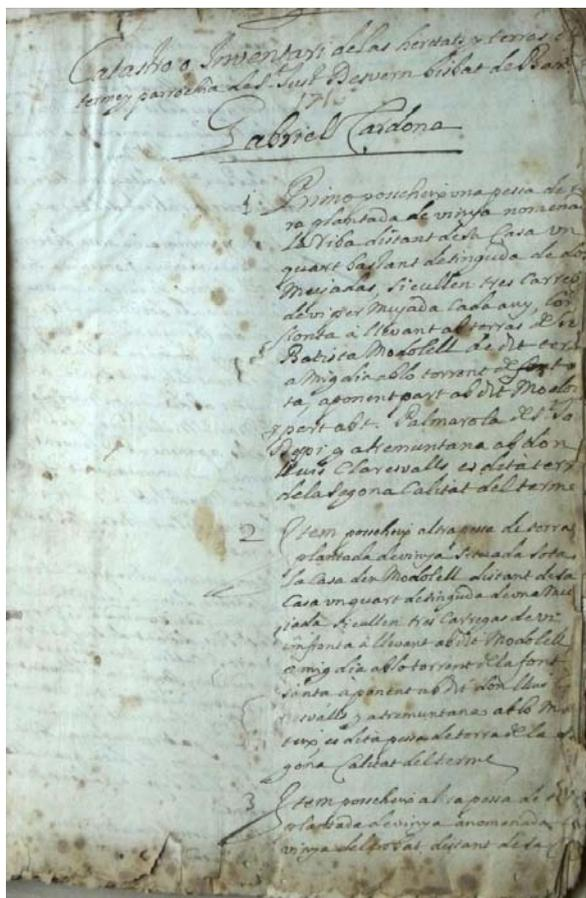 Catastro o Inventari de las heretats y terras
terme y parrochia de St. Just Desvern bisbat de Bar
1716
Gabriel Cardona
1 Primo posseheix una pessa de
ra plantada de vinya nomena
la Riba distant de sa Casa un
quart bastant de tinguda de do
Mujadas, si cullen tres Carreg
de vi per Mujada Cada any, Con
fronta à llevant ab terras de
Batista Modolell de dit ter
a Mig dia ab lo torrent
ta, a ponent part ab dit Modol
y part ab t. Palmarola de St.
y a tremuntana ab don
lluis Claresvalls es dita terr
de la segona Calitat del terme
2 Item posseheix altra pessa de terra
plantada de vinya situada sota
la Casa den Modolell distant de sa
Casa un quart de tinguda de una Mu
jada si cullen tres Carregas de vi
confronta à llevant ab dit Modolell
a mig dia ab lo torrent de la font
santa à ponent ab dit don lluis
resvalls y a tremuntana ab lo Ma
teix, es dita pessa de terra de la
gona Calitat del terme
3 Item posseheix altra pessa de
plantada de vinya anomenada
vinya del distant de sa